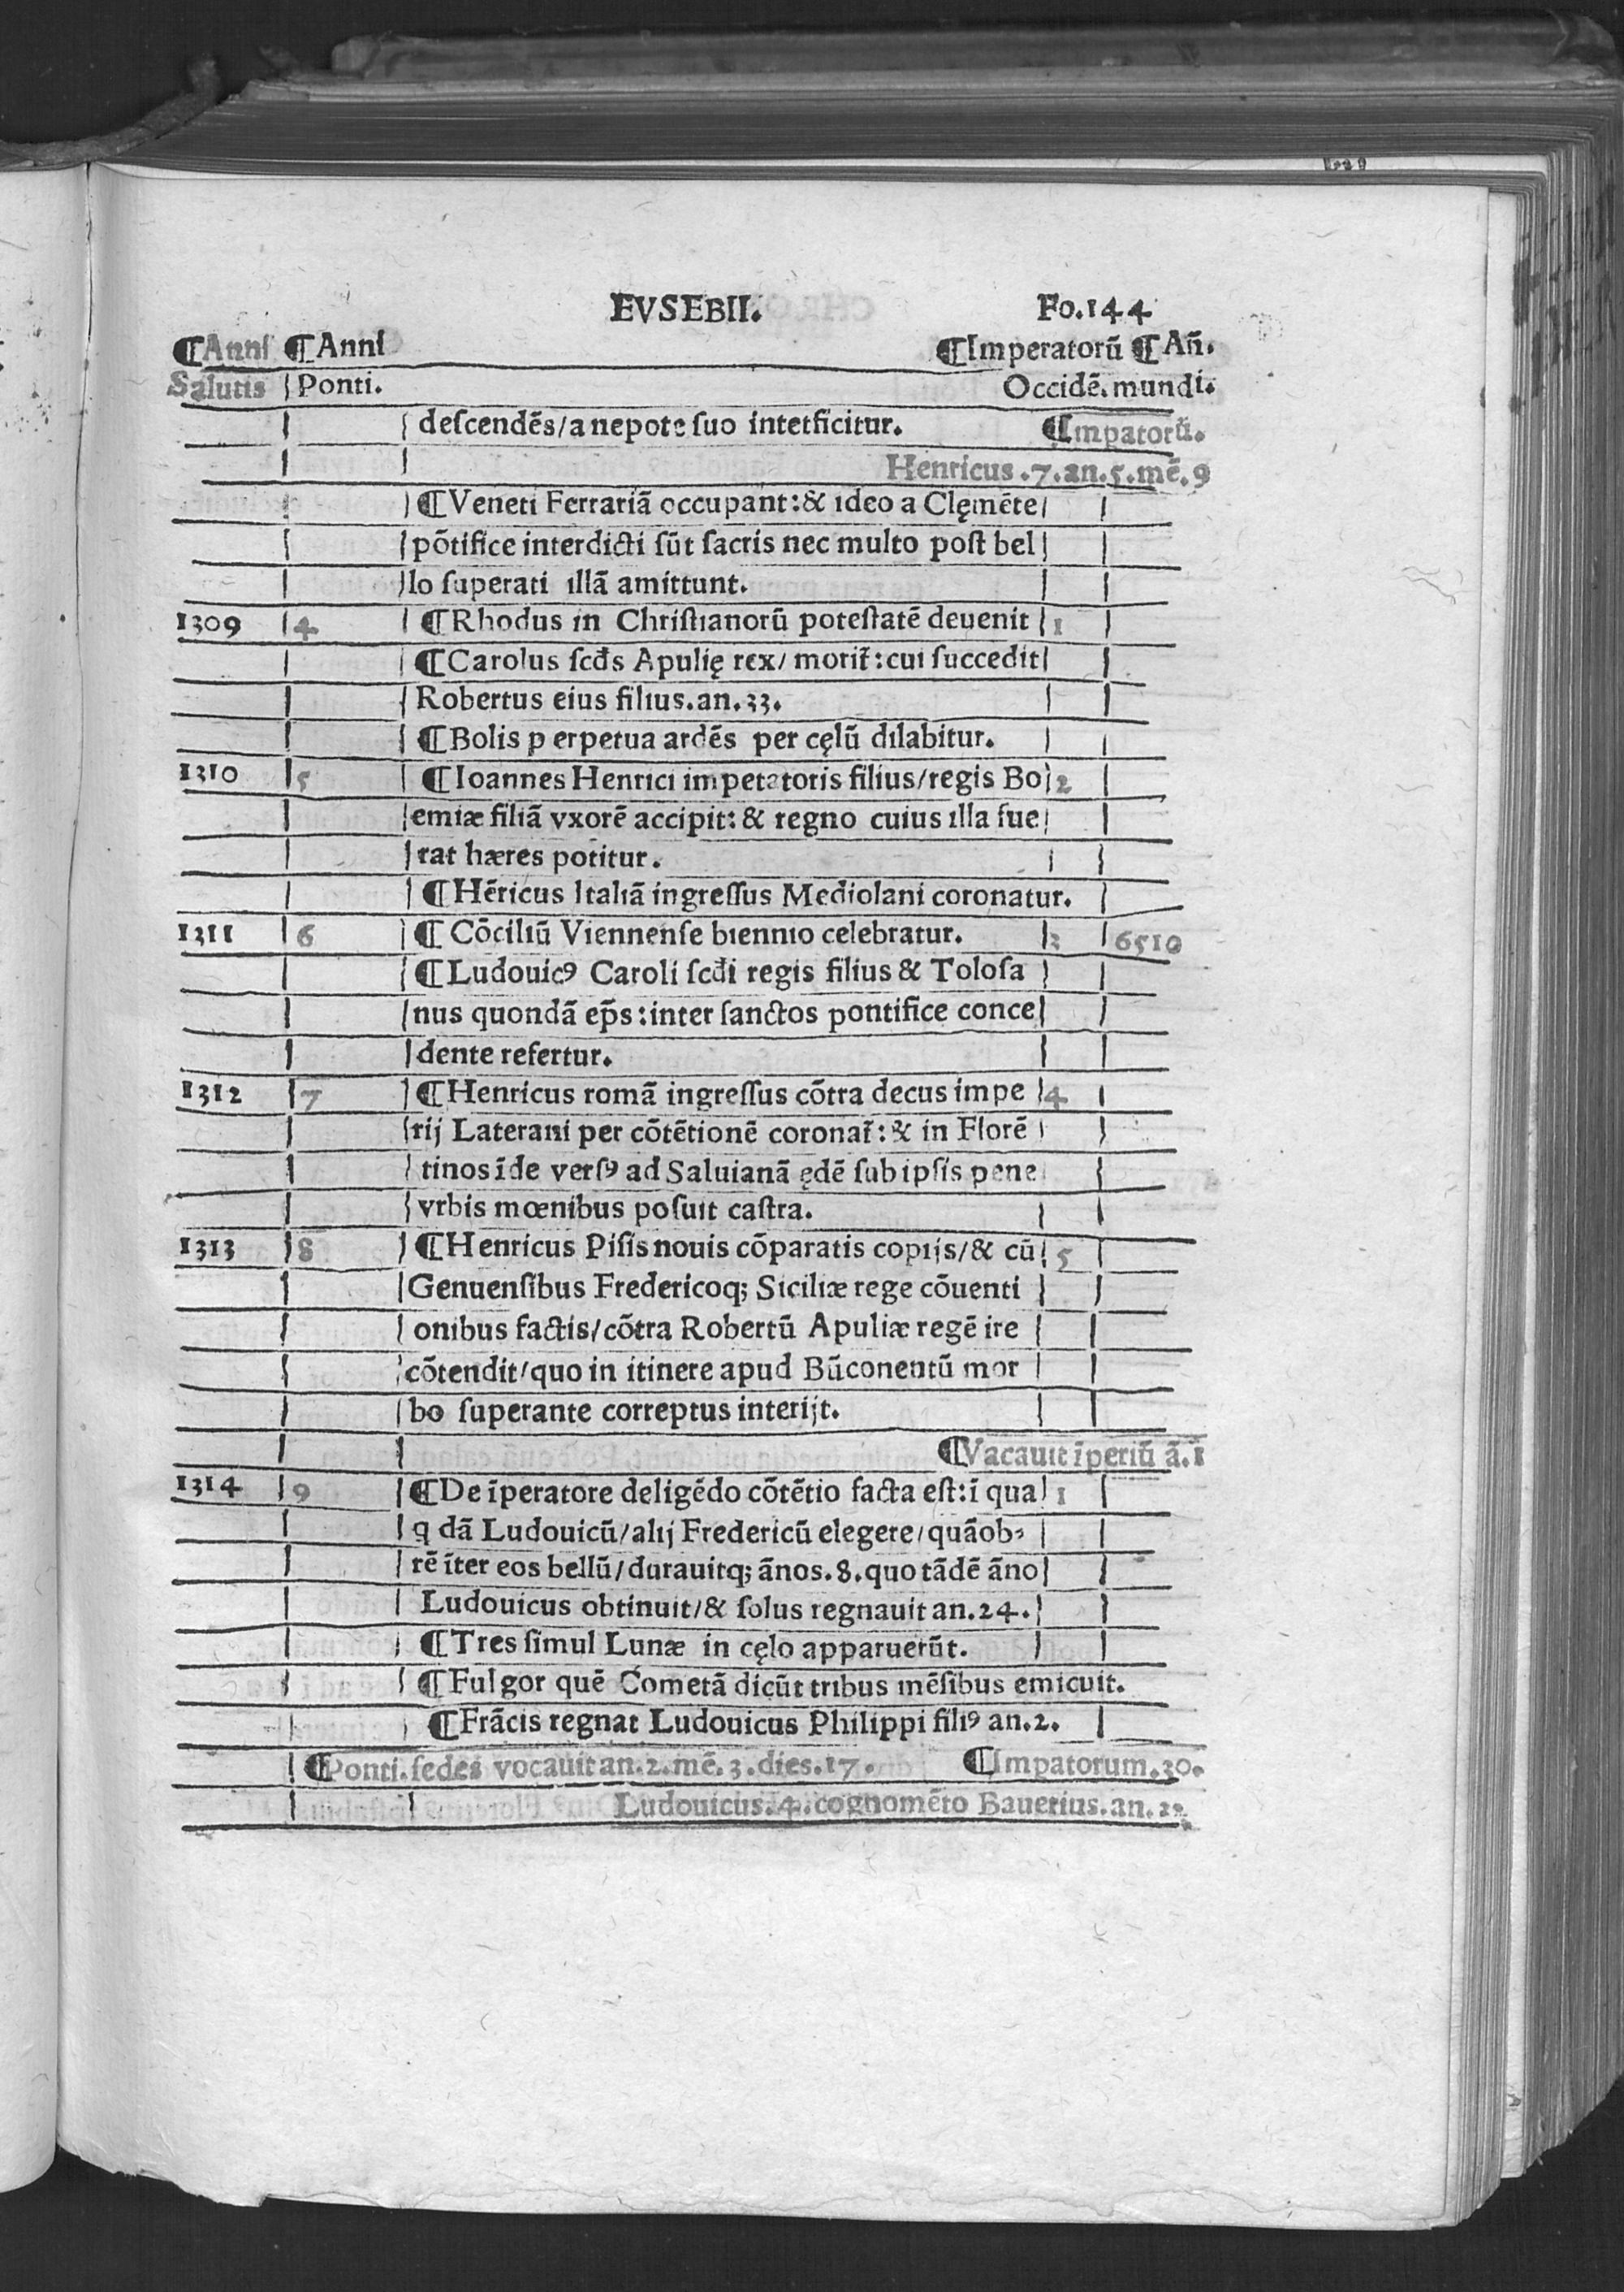 EVSEBII. Fo.144
¶Anni ¶Anni ¶Imperatorū ¶Añ.
Salutis Ponti. Occidē. mundi.
descendēs/a nepote suo intetficitur. ¶Impatorū.
Henricus .7. an. 5. mē. 9
¶Veneti Ferrariā occupant: & ideo a Clęmēte
pōtifice interdicti sūt sacris nec multo post bel
lo superati illā amittunt.
1309 4 ¶Rhodus in Christianorū potestatē deuenit 1
¶Carolus scđs Apulię rex/ morit̃: cui succedit
Robertus eius filius. an. 33.
¶Bolis p erpetua ardēs per cęlū dilabitur.
1310 5 ¶Ioannes Henrici impetatoris filius/regis Bo 2
emiæ filiā vxorē accipit: & regno cuius illa fue
rat hæres potitur.
¶Hēricus Italiā ingressus Mediolani coronatur.
1311 6 ¶Cōciliū Viennense biennio celebratur. 3 6510
¶Ludouicꝰ Caroli scđi regis filius & Tolosa
nus quondā ep̄s: inter sanctos pontifice conce
dente refertur.
1312 7 ¶Henricus romā ingressus cōtra decus impe 4
rij Laterani per cōtētionē coronat̃: & in Florē
tinos īde versꝰ ad Saluianā ędē sub ipsis pene
vrbis mœnibus posuit castra.
1313 8 ¶Henricus Pisis nouis cōparatis copijs/& cū 5
Genuensibus Fredericoq; Siciliæ rege cōuenti
onibus factis/cōtra Robertū Apuliæ regē ire
cōtendit/quo in itinere apud Būconentū mor
bo superante correptus interijt.
¶Vacauit īperiū ā. 1
1314 9 ¶De īperatore deligēdo cōtētio facta est: ī qua 1
q dā Ludouicū/alij Fredericū elegere/quāob⸗
rē īter eos bellū/durauitq; āños. 8. quo tādē āño
Ludouicus obtinuit/& solus regnauit an. 24.
¶Tres simul Lunæ in cęlo apparuerūt.
¶Fulgor quē Cometā dicūt tribus mēsibus emicuit.
¶Frācis regnat Ludouicus Philippi filiꝰ an. 2.
¶Ponti. sedes vocauit an. 2. mē. 3. dies. 17. ¶Impatorum. 30.
Ludouicus. 4. cognomēto Bauerius. an.